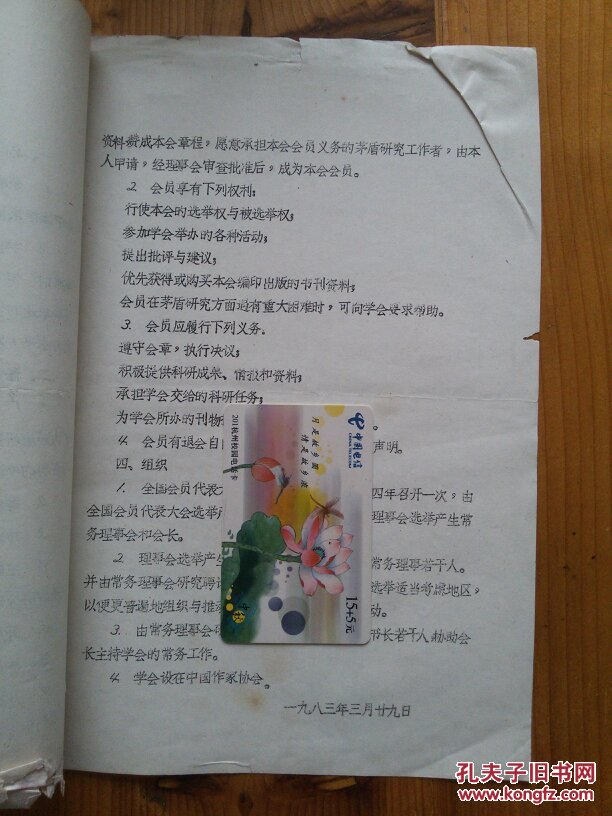 资料赞成本会章程，愿意承担本会会员义务的茅盾研究工作者，由本
人申请，经理事会审查批准后，成为本会会员。
2. 会员享有下列权利：
行使本会的选举权与被选举权；
参加学会举办的各种活动；
提出批评与建议；
优先获得或购买本会编印出版的书刊资料；
会员在茅盾研究方面遇有重大困难时，可向学会要求帮助。
3. 会员应履行下列义务。
遵守会章，执行决议；
积极提供科研成果、情报和资料；
承担学会交给的科研任务；
为学会所办的刊物 。
4. 会员有退会自 声明。
四、组织
1. 全国会员代表大 四年召开一次，由
全国会员代表大会选举 理事会选举产生常
务理事会和会长。
2. 理事会选举产生 常务理事若干人。
并由常务理事会研究聘 选举适当考虑地区，
以便更普遍地组织与推动 动。
3. 由常务理事会 书长若干人协助会
长主持学会的常务工作。
4. 学会设在中国作家协会。
一九八三年三月廿九日
中国电信
CHINA TELECOM
月是故乡圆
情是故乡浓
201杭州校园电话卡
15+5元
孔夫子旧书网
www.kongfz.com